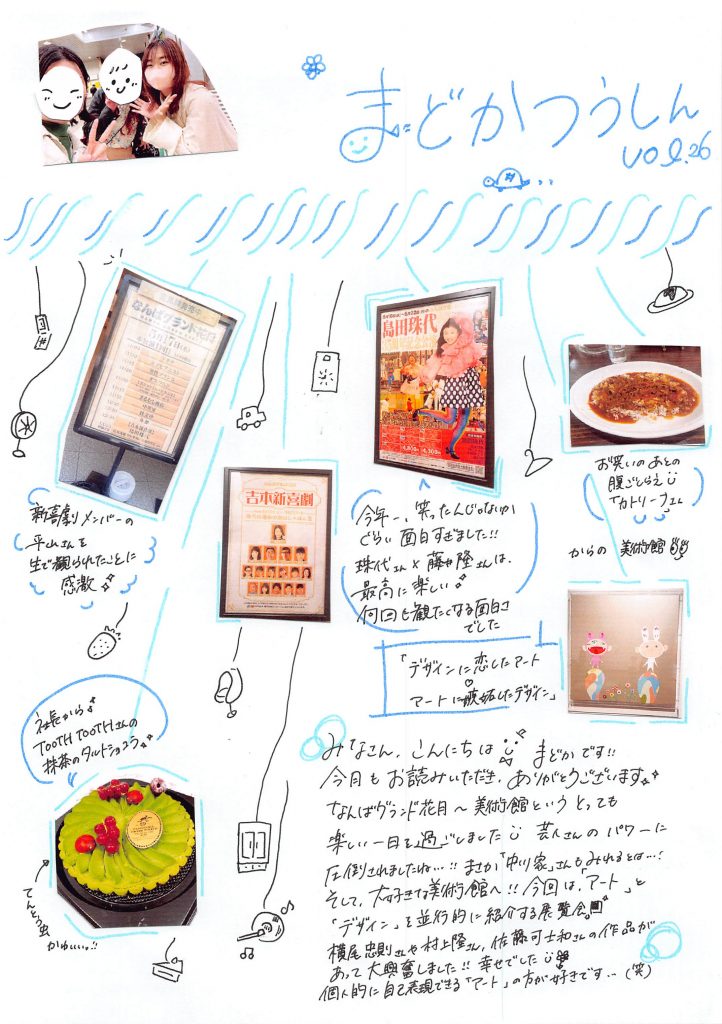 まどかつうしん
vol.26
なんばグランド花月
島田珠代
吉本新喜劇
新喜劇メンバーの
平山さんを
生で観られたことに
感激
今年一、笑ったんじゃないか
ぐらい面白すぎました!!
珠代さん×藤井隆さんは、
最高に楽しい
何回も観たくなる面白さ
でした
お笑いのあとの
腹ごしらえ
「カトリーナ」さん
からの 美術館
「デザインに恋したアート
アートに嫉妬したデザイン」
社長から
TOOTH TOOTHさんの
抹茶のタルトショコラ
てんとう虫
かわいいっ!!
みなさん、こんにちは まどかです!!
今月もお読みいただき、ありがとうございます
なんばグランド花月〜美術館というとっても
楽しい一日を過ごしました 芸人さんのパワーに
圧倒されましたね…!! まさか「中川家」さんもみれるとは…!
そして、大好きな美術館へ!! 今回は、「アート」と
「デザイン」を並行的に紹介する展覧会
横尾忠則さんや村上隆さん、佐藤可士和さんの作品が
あって大興奮しました!! 幸せでした
個人的に自己表現できる「アート」の方が好きです…(笑)